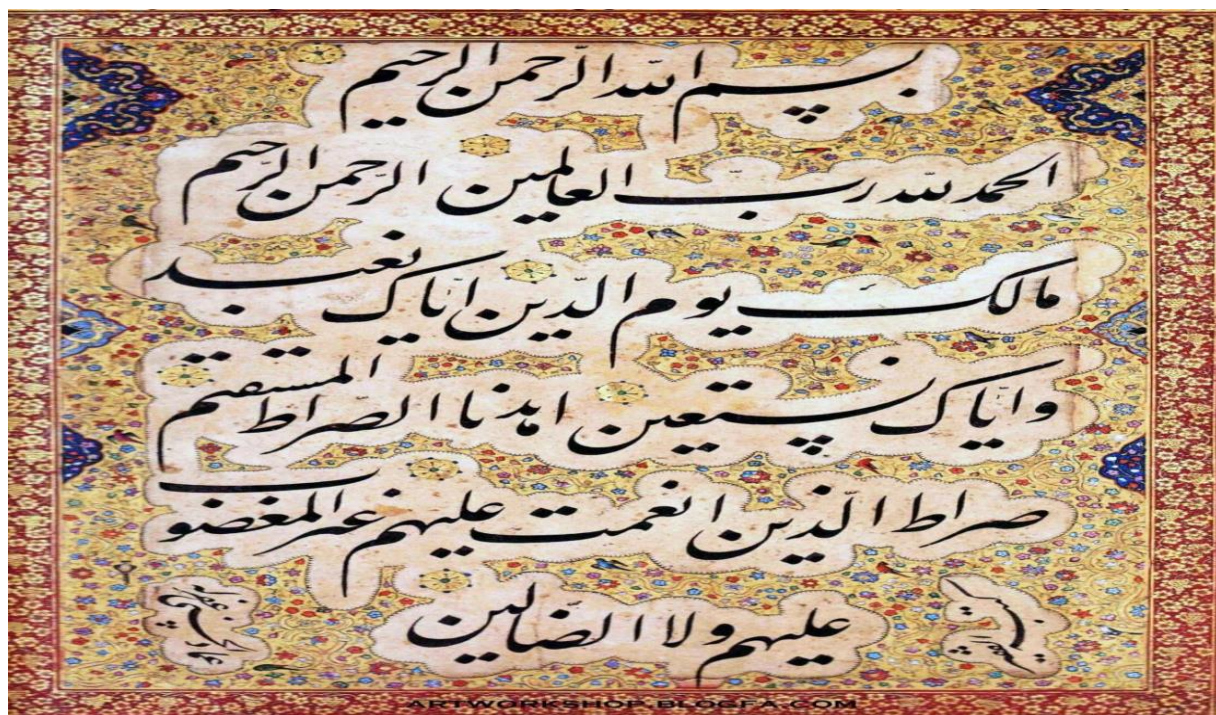 بسم الله الرّحمن الرحیم
الحمد لله ربّ العالمین الرّحمن الرحیم
مالک یوم الدّین ایّاک نعبد
وایّاک نستعین اهدنا الصّراط المستقیم
صراط الّذین انعمت علیهم غیر المغضوب
علیهم ولا الضّالین
ARTWORKSHOP.BLOGFA.COM